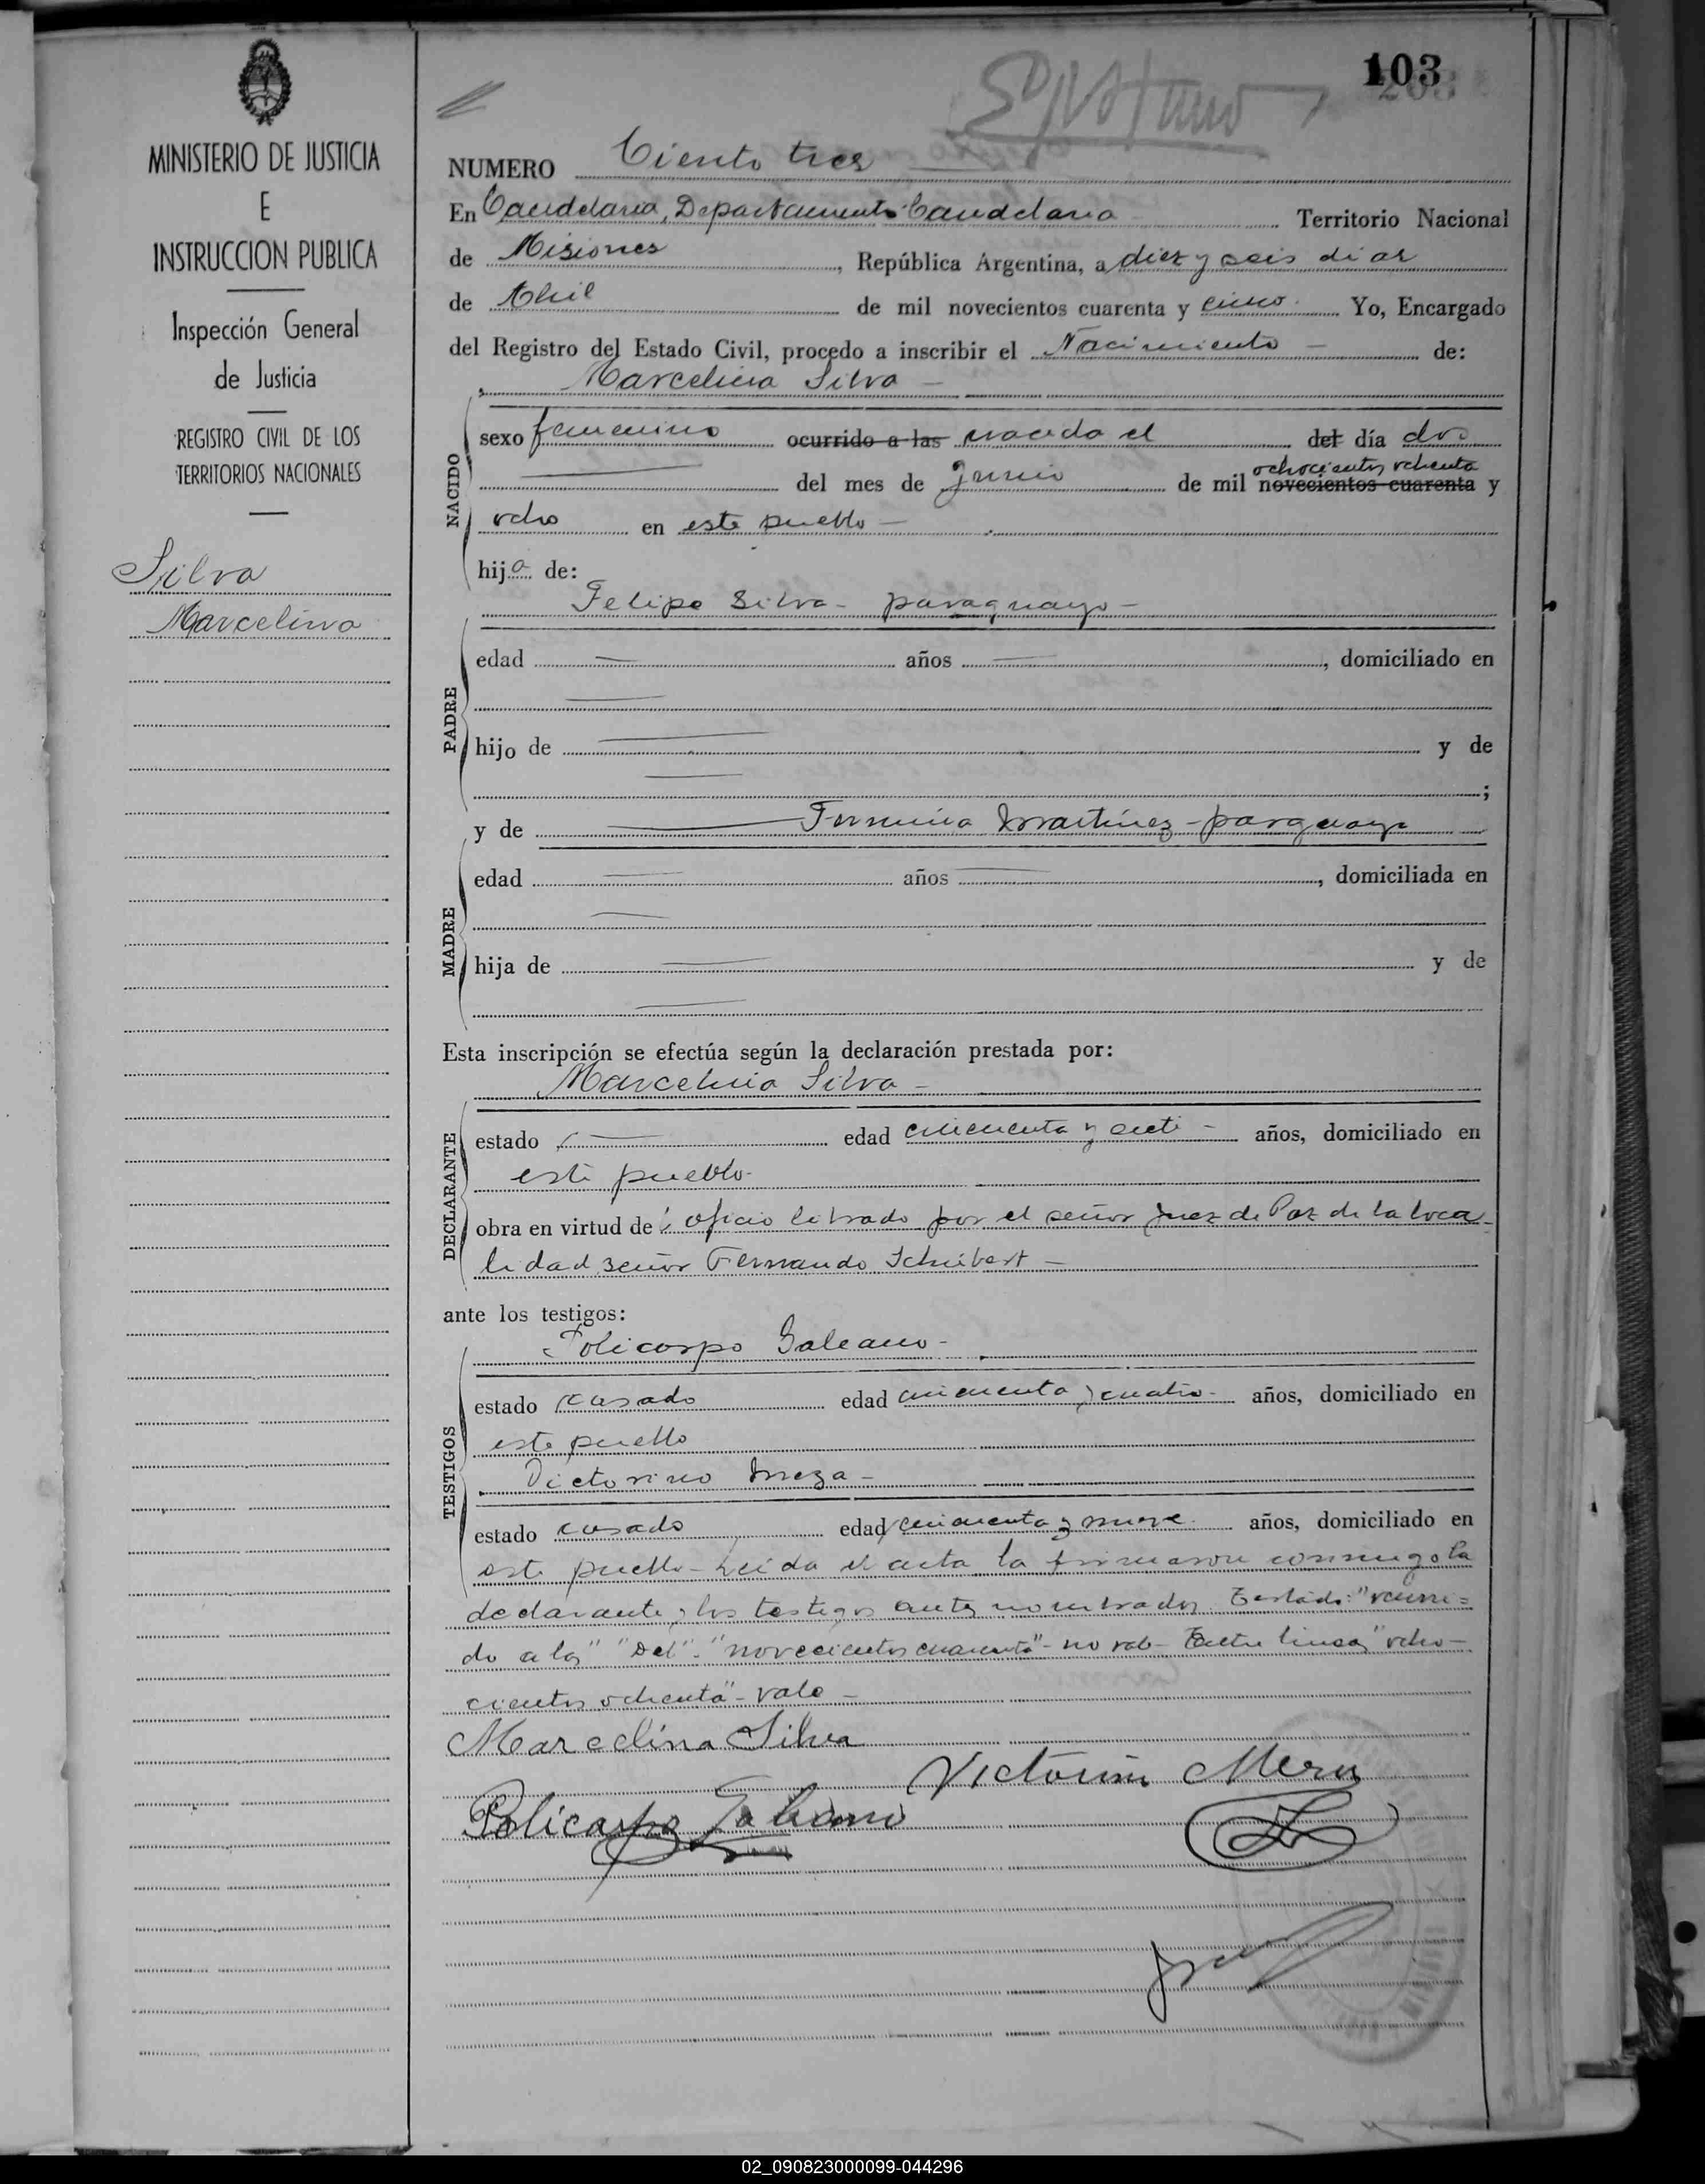 103
MINISTERIO DE JUSTICIA
E
INSTRUCCION PUBLICA
Inspección General
de Justicia
REGISTRO CIVIL DE LOS
TERRITORIOS NACIONALES
Silva
Marcelina
NUMERO Ciento tres
En Candelaria, Departamento Candelaria Territorio Nacional
de Misiones, República Argentina, a diez y seis días
de Abril de mil novecientos cuarenta y cinco. Yo, Encargado
del Registro del Estado Civil, procedo a inscribir el Nacimiento — de:
Marcelina Silva —
NACIDO
sexo femenino ocurrido a las nacida el del día dos
ochocientos ochenta
del mes de Junio de mil novecientos cuarenta y
ocho en este pueblo —
hija de:
Felipe Silva - paraguayo -
PADRE
edad — años —, domiciliado en
hijo de — y de
— ;
y de — Fermina Martínez - paraguaya
MADRE
edad — años —, domiciliada en
hija de — y de
Esta inscripción se efectúa según la declaración prestada por:
Marcelina Silva —
DECLARANTE
estado — edad cincuenta y siete - años, domiciliado en
este pueblo-
obra en virtud de oficio librado por el señor Juez de Paz de la loca-
lidad señor Fernando Schubert —
ante los testigos:
Policarpo Galeano-
TESTIGOS
estado casado edad cincuenta y cuatro- años, domiciliado en
este pueblo
Victorino Meza -
estado casado edad cincuenta y nueve. años, domiciliado en
este pueblo- Leída el acta la firmaron conmigo la
declarante y los testigos antes nombrados. Testado: "ocurri=
do a las" "Del". "novecientos cuarenta"- no vale- Entre lineas "ocho-
cientos ochenta"- vale -
Marcelina Silva
Victorino Meza
Policarpo Galeano
02_090823000099-044296